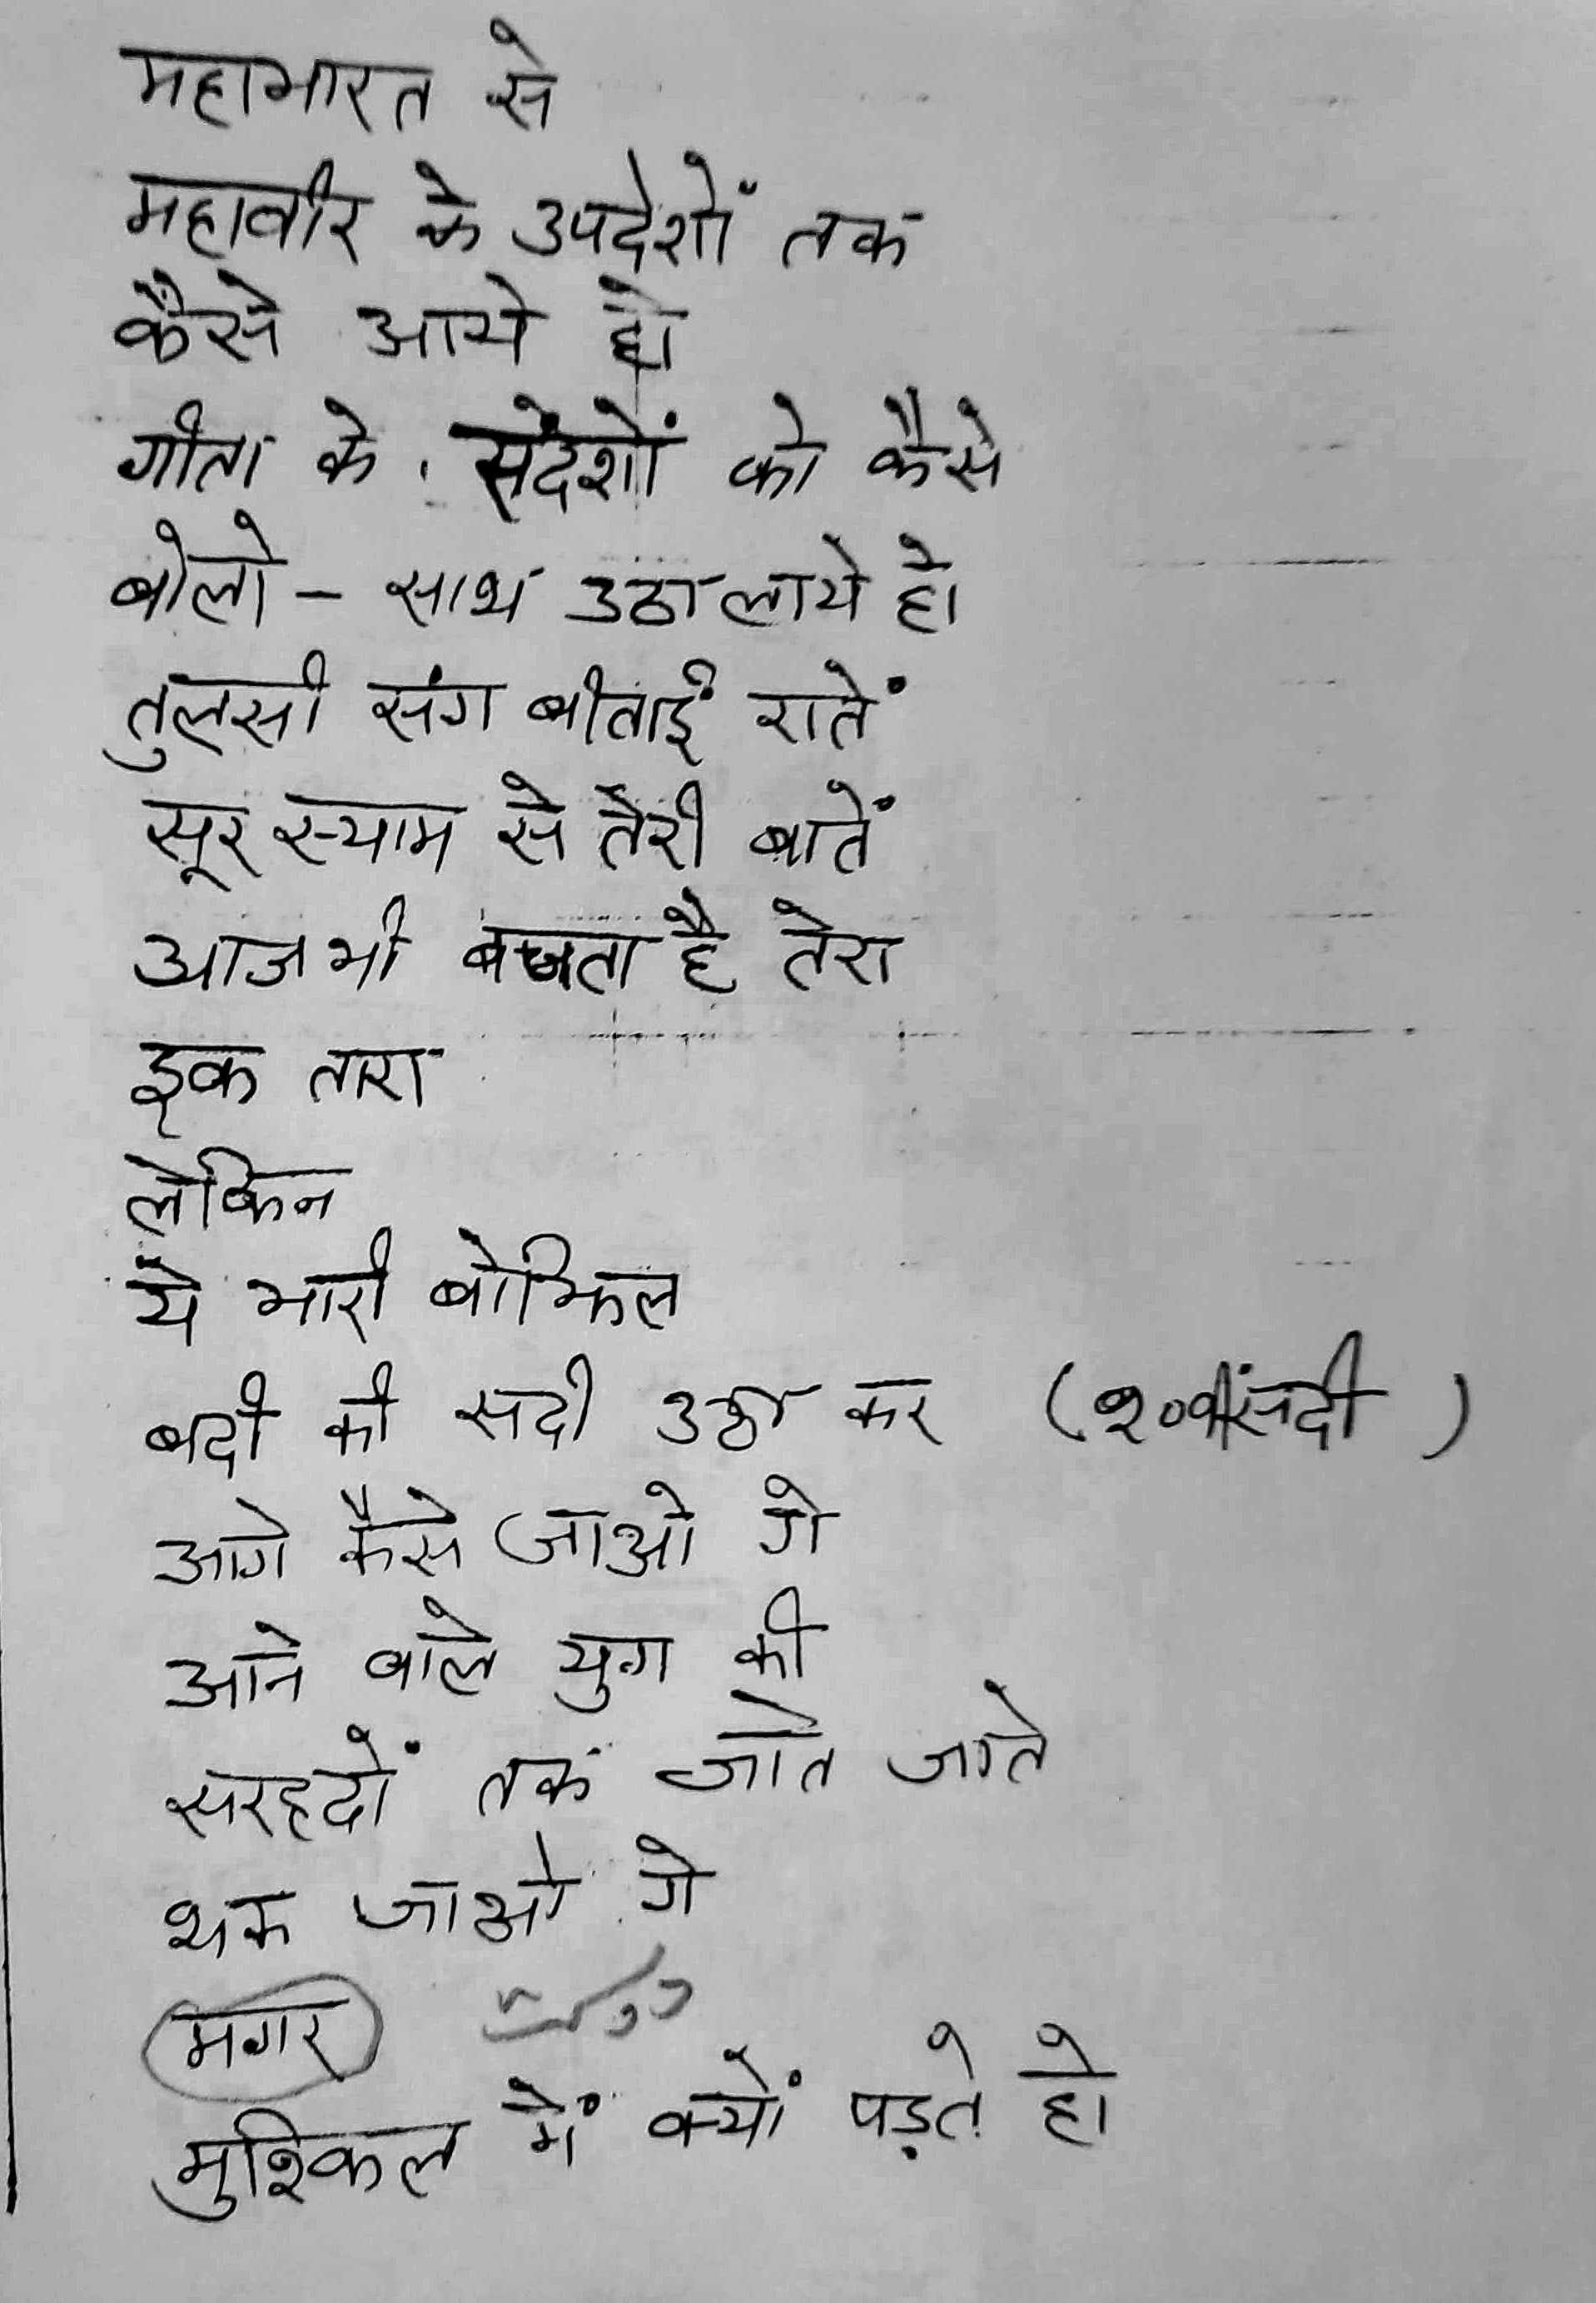 महाभारत से
महावीर के उपदेशों तक
कैसे आये हो
गीता के संदेशों को कैसे
बोलो - साथ उठा लाये हो
तुलसी संग बीताईं रातें
सूर स्याम से तेरी बातें
आज भी बजता है तेरा
इक तारा
लेकिन
ये भारी बोझिल
बदी की सदी उठा कर (२०वीं सदी)
आगे कैसे जाओ गे
आने वाले युग की
सरहदों तक जाते जाते
थक जाओ गे
मगर
मुश्किल में क्यों पड़ते हो